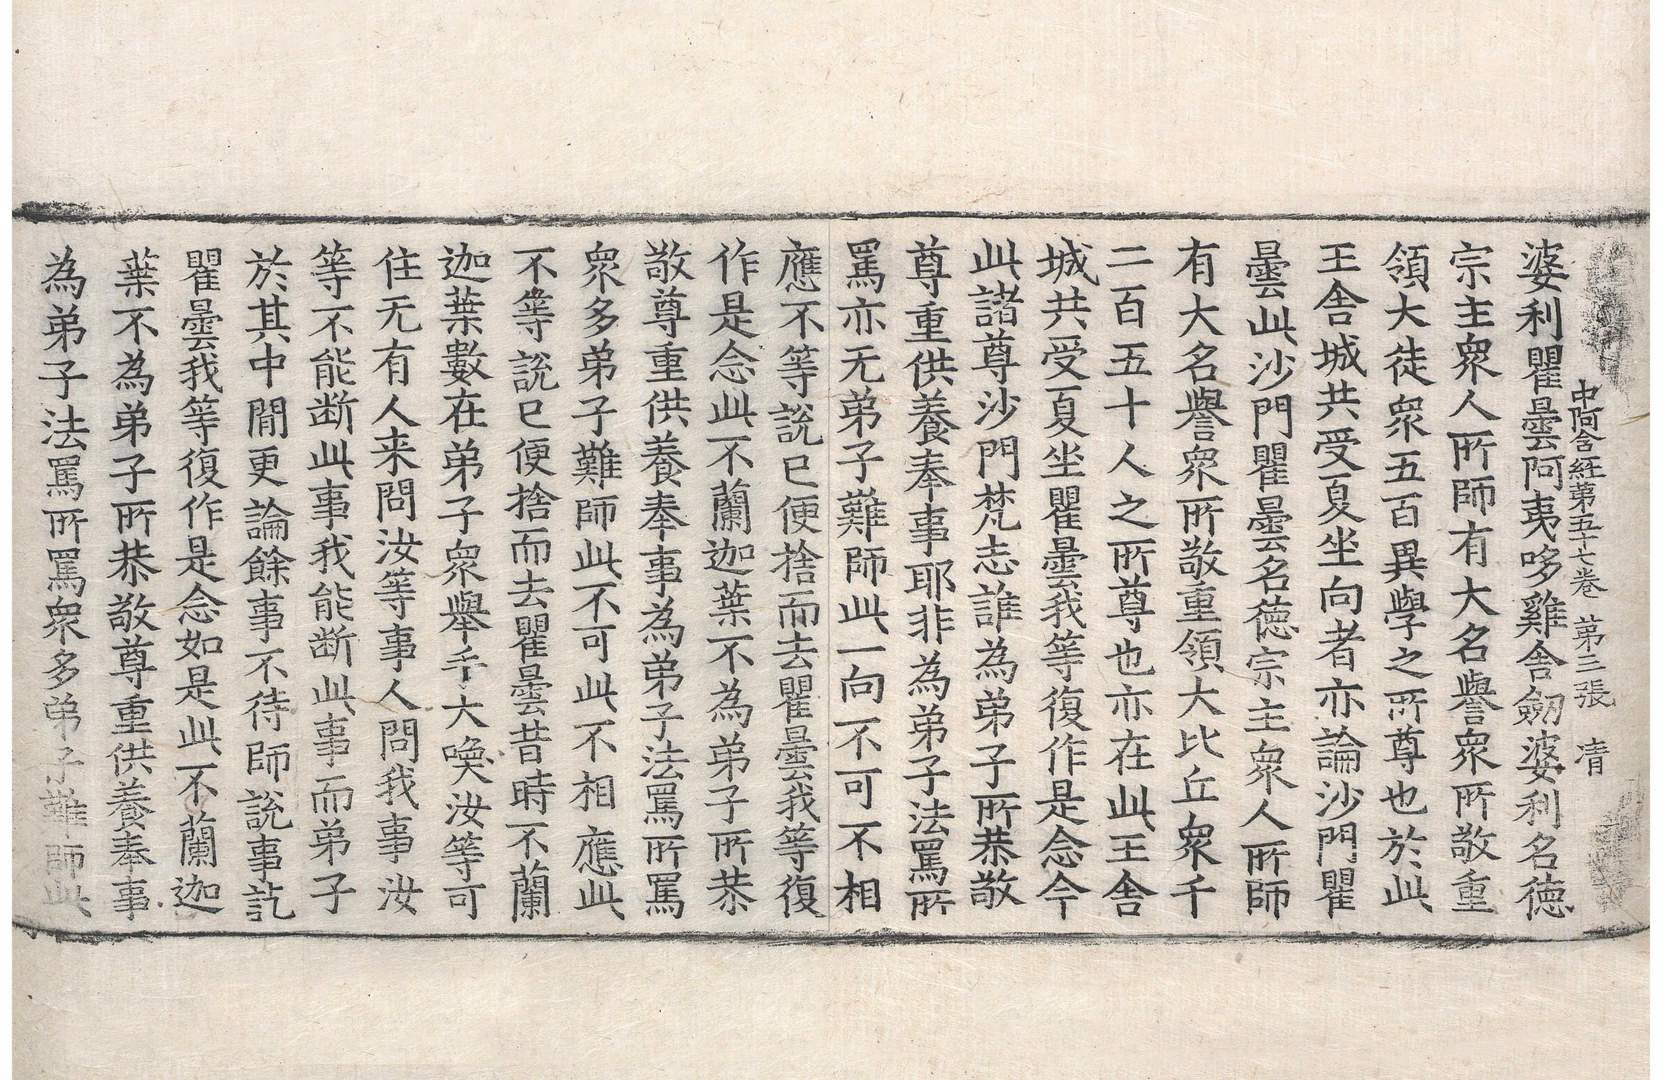 中阿含経第五十七卷 第三張 清
婆利瞿曇阿夷哆雞舍劒婆利名德
宗主衆人所師有大名譽衆所敬重
領大徒衆五百異學之所尊也於此
王舍城共受夏坐向者亦論沙門瞿
曇此沙門瞿曇名德宗主衆人所師
有大名譽衆所敬重領大比丘衆千
二百五十人之所尊也亦在此王舍
城共受夏坐瞿曇我等復作是念今
此諸尊沙門梵志誰為弟子所恭敬
尊重供養奉事耶非為弟子法罵所
罵亦无弟子難師此一向不可不相
應不等說已便捨而去瞿曇我等復
作是念此不蘭迦葉不為弟子所恭
敬尊重供養奉事為弟子法罵所罵
衆多弟子難師此不可此不相應此
不等說已便捨而去瞿曇昔時不蘭
迦葉數在弟子衆舉手大喚汝等可
住无有人来問汝等事人問我事汝
等不能断此事我能断此事而弟子
於其中間更論餘事不待師說事訖
瞿曇我等復作是念如是此不蘭迦
葉不為弟子所恭敬尊重供養奉事
為弟子法罵所罵衆多弟子難師此